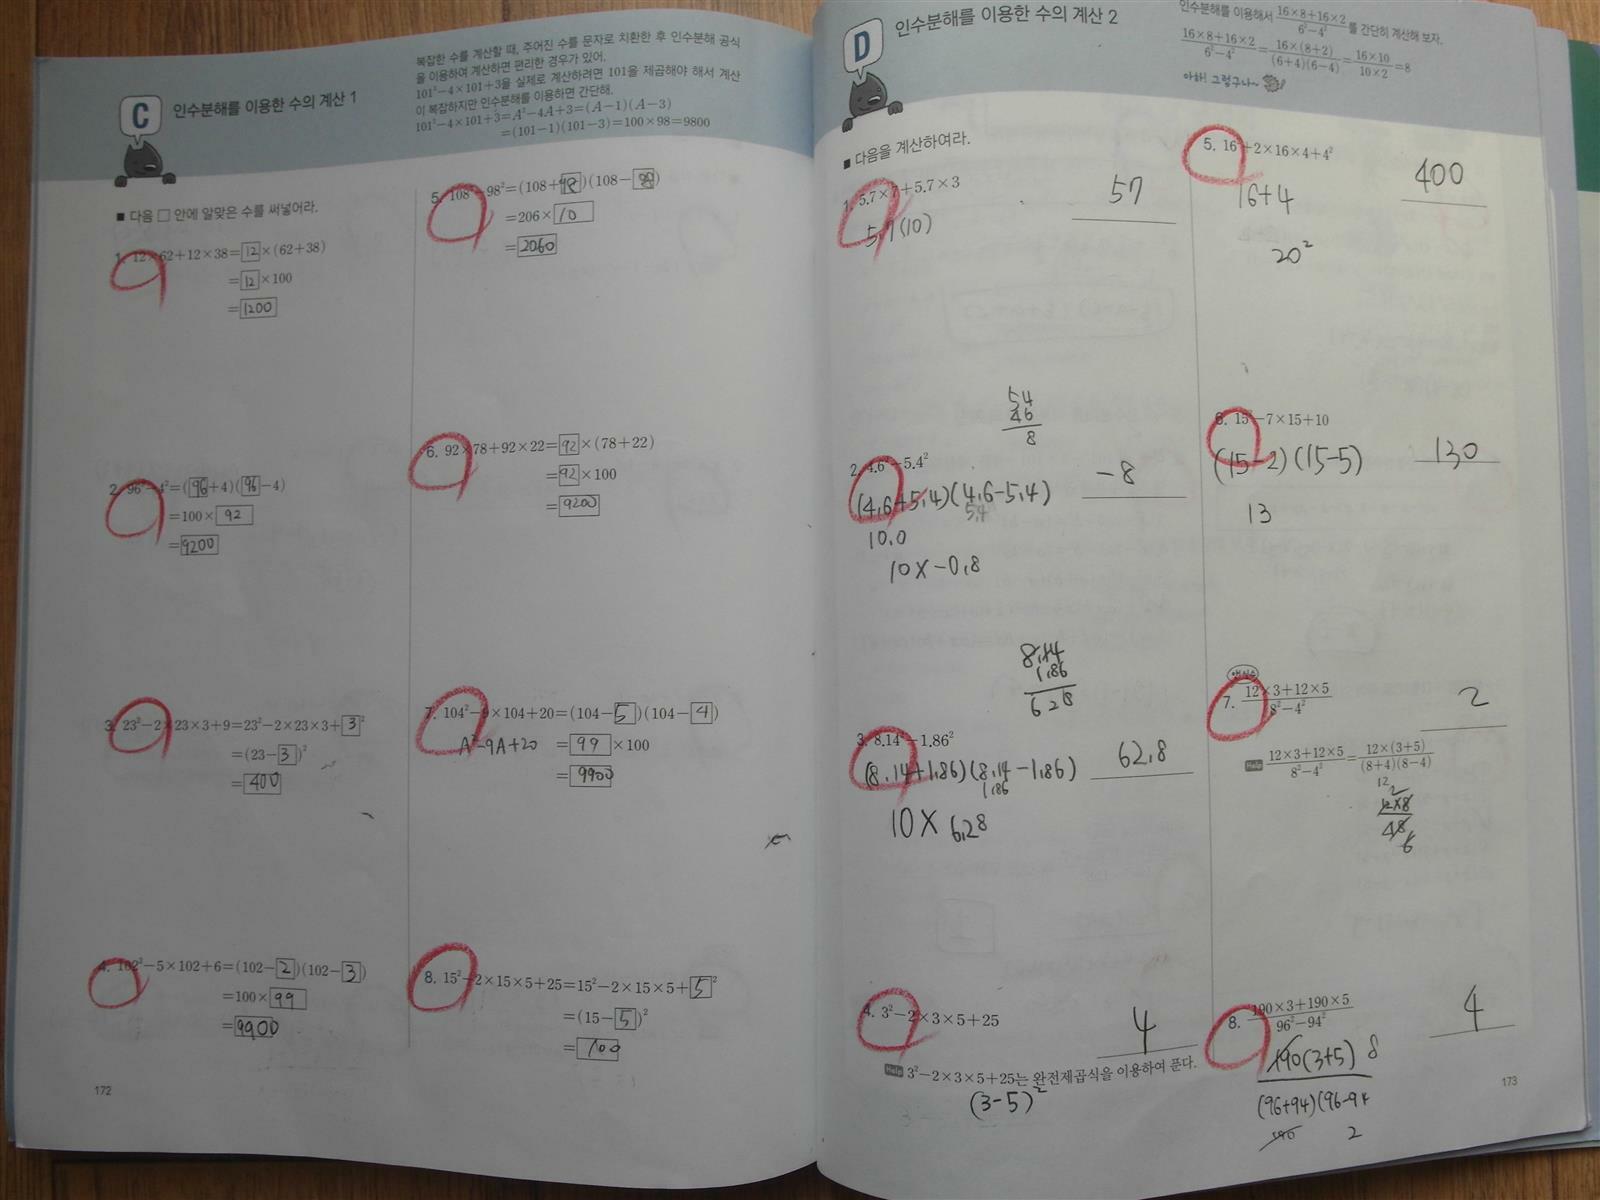 C
인수분해를 이용한 수의 계산 1
복잡한 수를 계산할 때, 주어진 수를 문자로 치환한 후 인수분해 공식
을 이용하여 계산하면 편리한 경우가 있어.
101²-4×101+3을 실제로 계산하려면 101을 제곱해야 해서 계산
이 복잡하지만 인수분해를 이용하면 간단해.
101²-4×101+3=A²-4A+3=(A-1)(A-3)
=(101-1)(101-3)=100×98=9800
■ 다음 □ 안에 알맞은 수를 써넣어라.
1. 12×62+12×38=12×(62+38)
=12×100
=1200
2. 96²-4²=(96+4)(96-4)
=100×92
=9200
3. 23²-2×23×3+9=23²-2×23×3+3²
=(23-3)²
=400
4. 102²-5×102+6=(102-2)(102-3)
=100×99
=9900
5. 108²-98²=(108+98)(108-98)
=206×10
=2060
6. 92×78+92×22=92×(78+22)
=92×100
=9200
7. 104²-9×104+20=(104-5)(104-4)
A²-9A+20 =99×100
=9900
8. 15²-2×15×5+25=15²-2×15×5+5²
=(15-5)²
=100
172
D
인수분해를 이용한 수의 계산 2
인수분해를 이용해서 (16×8+16×2)/(6²-4²)를 간단히 계산해 보자.
(16×8+16×2)/(6²-4²)=(16×(8+2))/((6+4)(6-4))=(16×10)/(10×2)=8
아하! 그렇구나~
■ 다음을 계산하여라.
1. 5.7×7+5.7×3
57
5.7(10)
54
46
8
2. 4.6²-5.4²
-8
(4.6+5.4)(4.6-5.4)
5.4
10.0
10×-0.8
8.14
1.86
628
3. 8.14²-1.86²
62.8
(8.14+1.86)(8.14-1.86)
1.86
10× 6.28
4. 3²-2×3×5+25
4
Help 3²-2×3×5+25는 완전제곱식을 이용하여 푼다.
(3-5)²
5. 16²+2×16×4+4²
400
16+4
20²
6. 15²-7×15+10
130
(15-2)(15-5)
13
앗!실수
7. (12×3+12×5)/(8²-4²)
2
Help (12×3+12×5)/(8²-4²)=(12×(3+5))/((8+4)(8-4))
12
2
12×8
48
6
8. (190×3+190×5)/(96²-94²)
4
190(3+5) 8
(96+94)(96-94
190 2
173